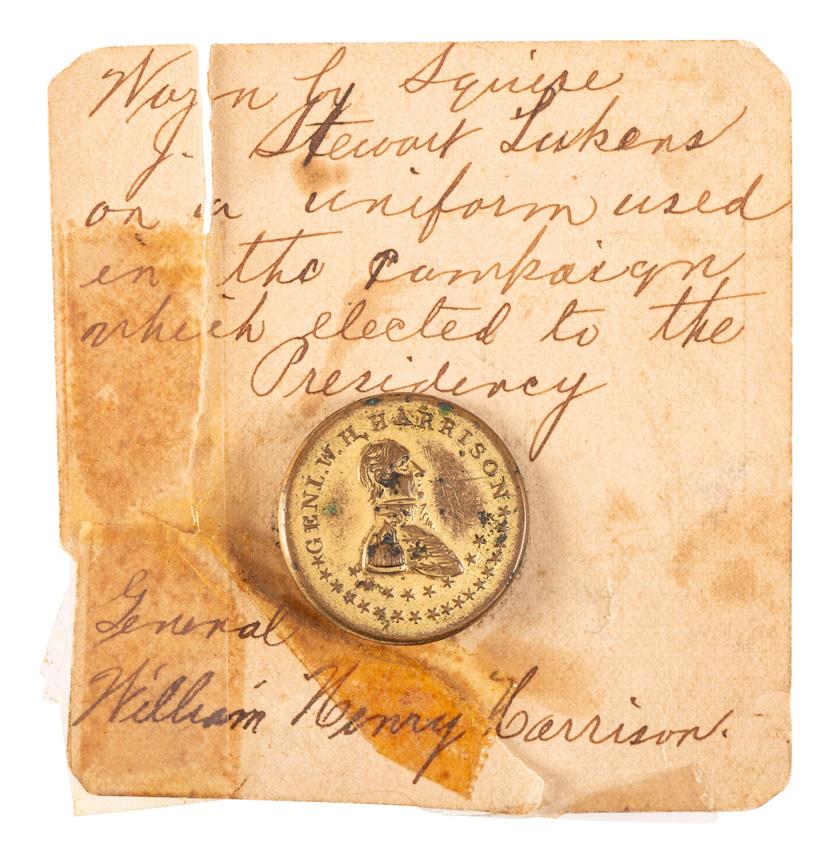 Worn by Squire
J. Stewart Lukens
on a uniform used
in the campaign
which elected to the
Presidency
GENL. W. H. HARRISON
General
William Henry Harrison.